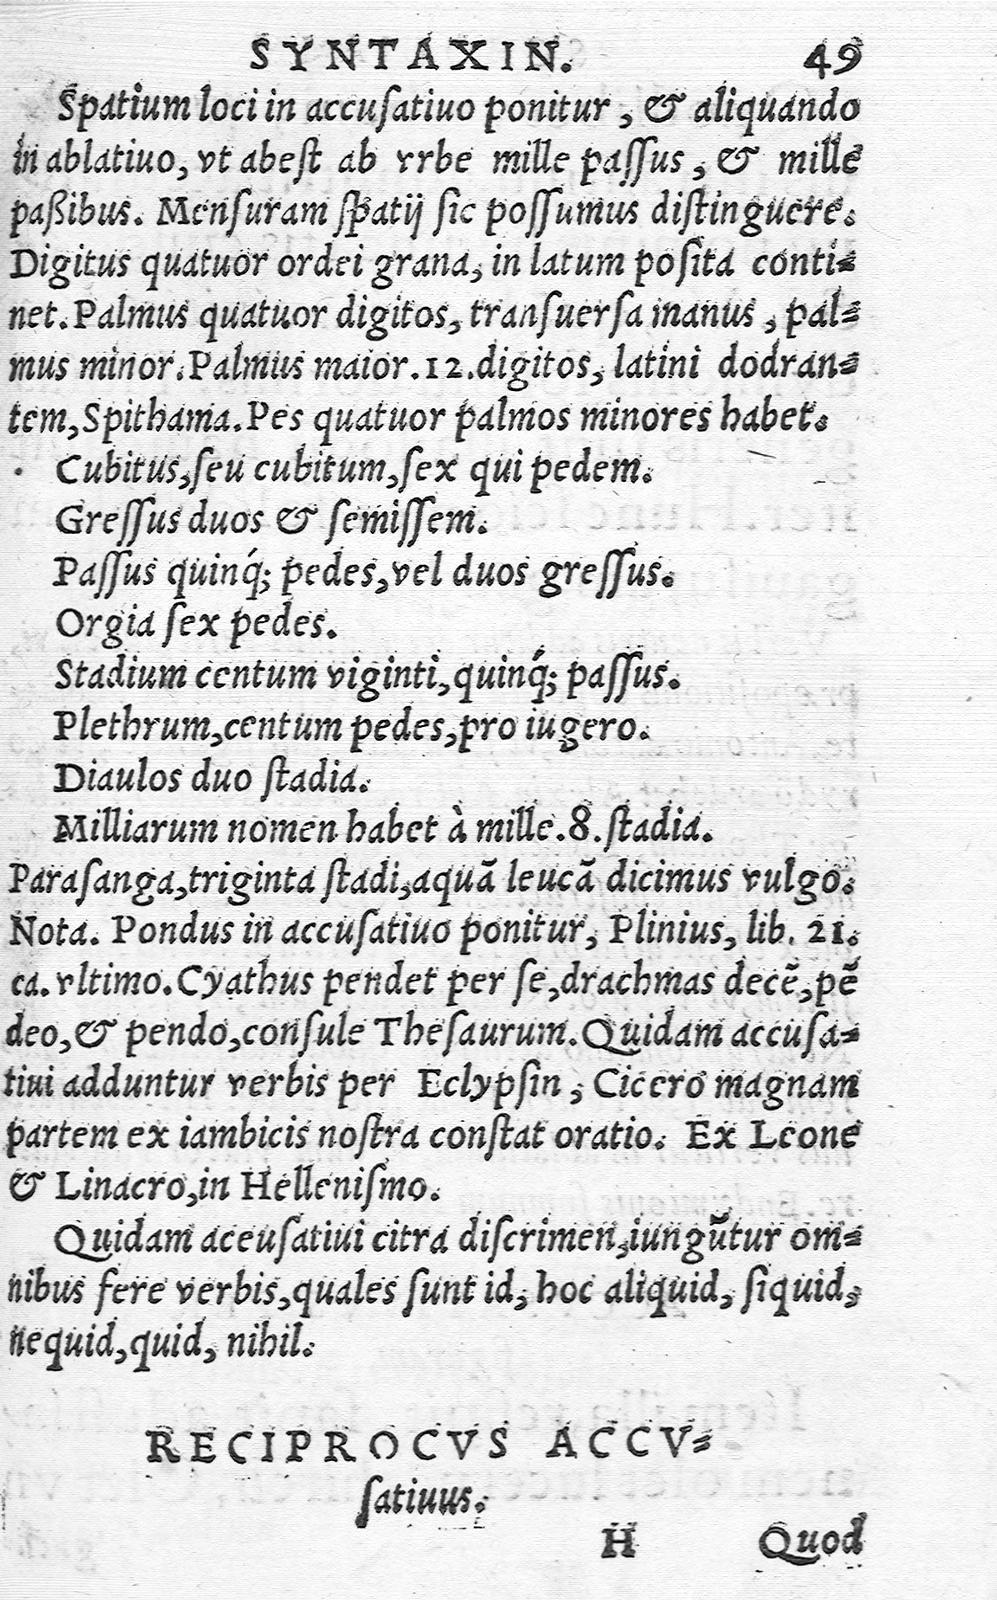 SYNTAXIN. 49
Spatium loci in accuſatiuo ponitur, & aliquando
in ablatiuo, vt abeſt ab vrbe mille paſſus, & mille
paßibus. Menſuram ſpatij ſic poſſumus diſtinguere.
Digitus quatuor ordei grana, in latum poſita conti-
net. Palmus quatuor digitos, tranſuerſa manus, pal-
mus minor. Palmus maior. 12. digitos, latini dodran-
tem, Spithama. Pes quatuor palmos minores habet.
Cubitus, ſeu cubitum, ſex qui pedem.
Greſſus duos & ſemiſſem.
Paſſus quinq́; pedes, vel duos greſſus.
Orgia ſex pedes.
Stadium centum viginti, quinq́; paſſus.
Plethrum, centum pedes, pro iugero.
Diaulos duo ſtadia.
Milliarum nomen habet à mille. 8. ſtadia.
Paraſanga, triginta ſtadi, aquā leucā dicimus vulgo.
Nota. Pondus in accuſatiuo ponitur, Plinius, lib. 21.
ca. vltimo. Cyathus pendet per ſe, drachmas decē, pē
deo, & pendo, conſule Theſaurum. Quidam accuſa-
tiui adduntur verbis per Eclypſin, Cicero magnam
partem ex iambicis noſtra conſtat oratio. Ex Leone
& Linacro, in Helleniſmo.
Quidam aceuſatiui citra diſcrimen, iungūtur om-
nibus fere verbis, quales ſunt id, hoc aliquid, ſiquid,
nequid, quid, nihil.
RECIPROCVS ACCV-
ſatiuus.
H Quod